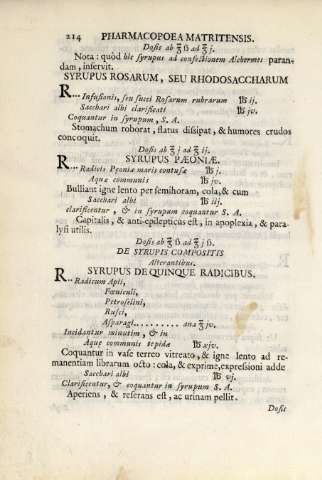 214 PHARMACOPOEA MATRITENSIS.
Dosis ab ℥ ß ad ℥ j.
Nota: quòd hic syrupus ad confectionem Alchermes paran-
dam, inservit.
SYRUPUS ROSARUM, SEU RHODOSACCHARUM
R... Infusionis, seu succi Rosarum rubrarum ℔ ij.
Sacchari albi clarificati ℔ jv.
Coquantur in syrupum, S. A.
Stomachum roborat, flatus dissipat, & humores crudos
concoquit.
Dosis ab ℥ j ad ℥ ij.
SYRUPUS PÆONIÆ.
R... Radicis Pæoniæ maris contusæ ℔ j.
Aquæ communis ℔ jv.
Bulliant igne lento per semihoram, cola, & cum
Sacchari albi ℔ iij.
clarificentur, & in syrupum coquantur S. A.
Capitalis, & anti-epilepticus est, in apoplexia, & para-
lysi utilis.
Dosis ab ℥ ß ad ℥ j ß.
DE SYRUPIS COMPOSITIS
Alterantibus.
SYRUPUS DE QUINQUE RADICIBUS.
R... Radicum Apii,
Fœniculi,
Petroselini,
Rusci,
Asparagi......... ana ℥ jv.
Incidantur minutim, & in
Aquæ communis tepidæ ℔ xjv.
Coquantur in vase terreo vitreato, & igne lento ad re-
manentiam librarum octo: cola, & exprime, expressioni adde
Sacchari albi ℔ vj.
Clarificentur, & coquantur in syrupum S. A.
Aperiens, & reserans est, ac urinam pellit.
Dosis